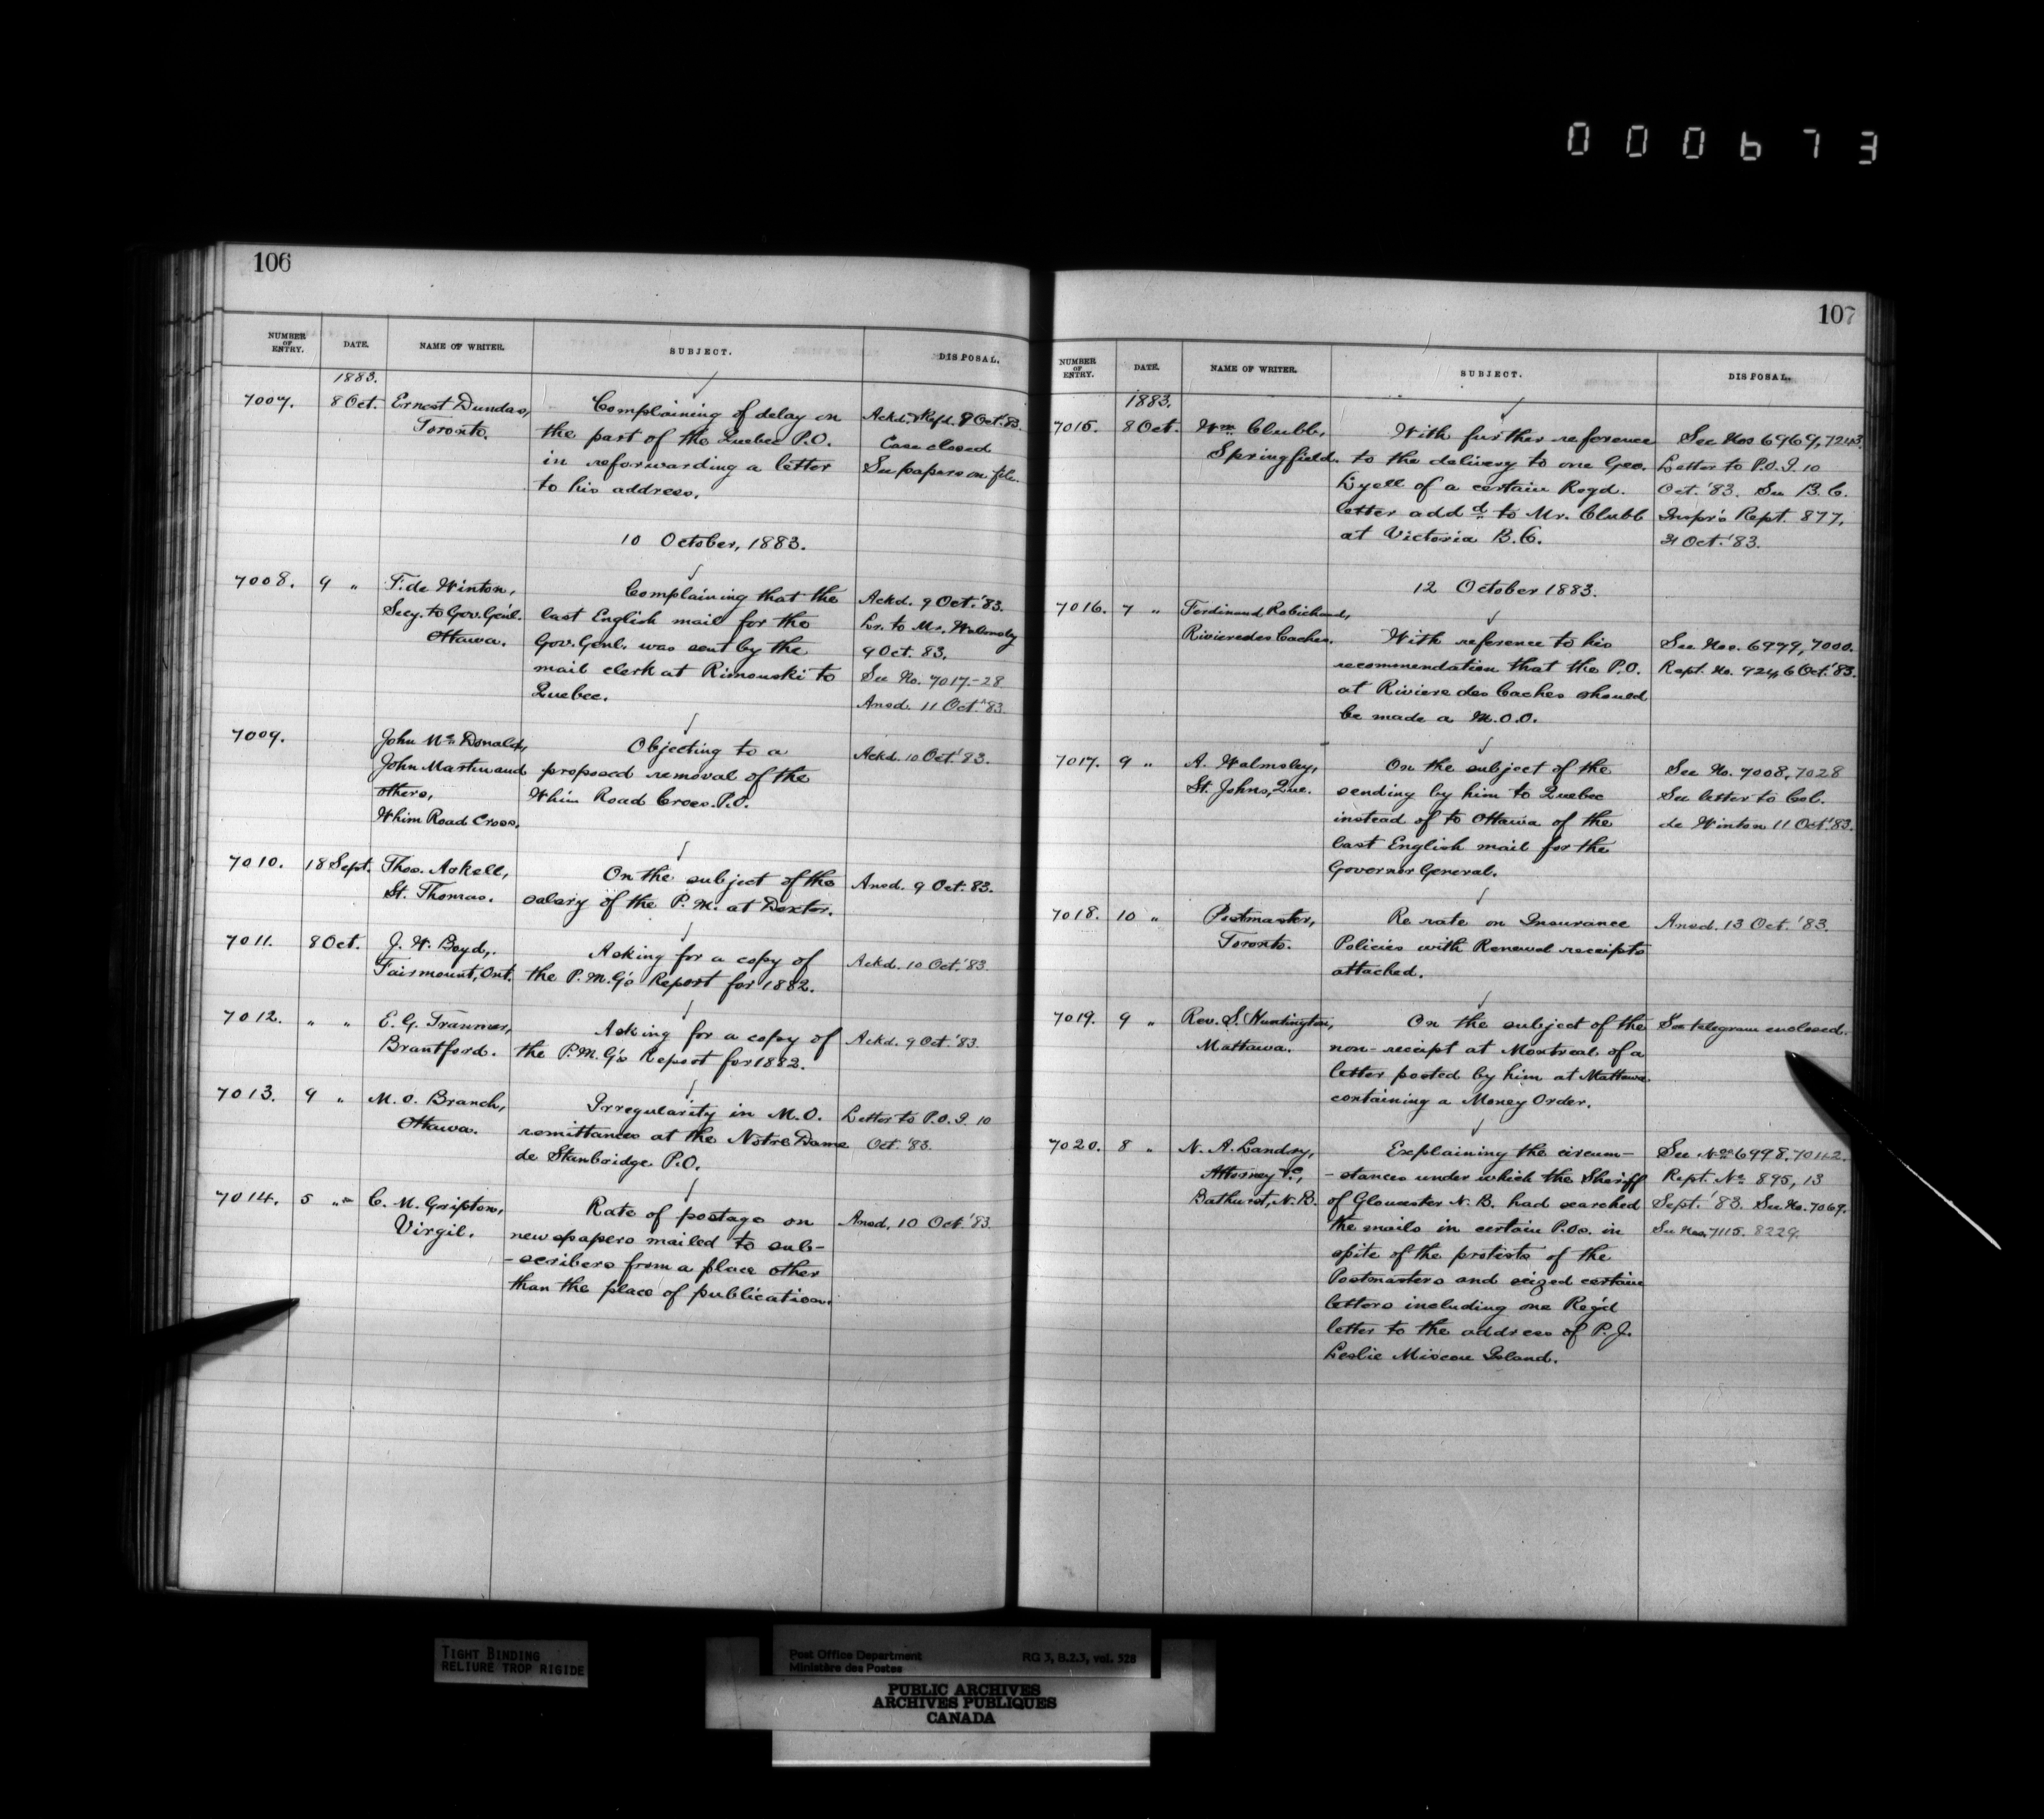 000673
106
NUMBER OF ENTRY. DATE. NAME OF WRITER. SUBJECT. DISPOSAL.
1883.
7007. 8 Oct. Ernest Dundas, Complaining of delay on Ackd. & Refd. 8 Oct. '83.
Toronto. the part of the Quebec P.O. Case closed
in reforwarding a letter See papers on file.
to his address.
10 October, 1883.
7008. 9 " F. de Winton, Complaining that the Ackd. 9 Oct. '83.
Secy. to Gov. Genl. last English mail for the Lr. to Mr. Walmsley
Ottawa. Gov. Genl. was sent by the 9 Oct. 83.
mail clerk at Rimouski to See No. 7017.-28
Quebec. Ansd. 11 Oct. '83.
7009. John McDonald, Objecting to a Ackd. 10 Oct. '83.
John Martin and proposed removal of the
others, Whim Road Cross. P.O.
Whim Road Cross.
7010. 18 Sept. Thos. Askell, On the subject of the Ansd. 9 Oct. 83.
St. Thomas. salary of the P.M. at Dexter.
7011. 8 Oct. J. W. Boyd, Asking for a copy of Ackd. 10 Oct. '83.
Fairmount, Ont. the P.M.G's Report for 1882.
7012. " " E. G. Tranmer, Asking for a copy of Ackd. 9 Oct. '83.
Brantford. the P.M.G's Report for 1882.
7013. 9 " M.O. Branch, Irregularity in M.O. Letter to P.O.I. 10
Ottawa. remittances at the Notre Dame Oct. '83.
de Stanbridge P.O.
7014. 5 " C. M. Gripton, Rate of postage on Ansd. 10 Oct. '83.
Virgil. newspapers mailed to sub-
-scribers from a place other
than the place of publication.
107
NUMBER OF ENTRY. DATE. NAME OF WRITER. SUBJECT. DISPOSAL.
1883.
7015. 8 Oct. Wm. Clubb, With further reference See Nos 6969, 7243.
Springfield. to the delivery to one Geo. Letter to P.O.I. 10
Lyell of a certain Regd. Oct. '83. See B.C.
letter addd to Mr. Clubb Inspr's Rept. 877,
at Victoria B.C. 31 Oct. '83.
12 October 1883.
7016. 7 " Ferdinand Robichaud,
Riviere des Caches. With reference to his See Nos. 6979, 7000.
recommendation that the P.O. Rept. No. 924, 6 Oct. '83.
at Riviere des Caches should
be made a M.O.O.
7017. 9 " A. Walmsley, On the subject of the See No. 7008, 7028
St. Johns, Que. sending by him to Quebec See letter to Col.
instead of to Ottawa of the de Winton 11 Oct. '83.
last English mail for the
Governor General.
7018. 10 " Postmaster, Re rate on Insurance Ansd. 13 Oct. '83.
Toronto. Policies with Renewal receipts
attached.
7019. 9 " Rev. S. Huntington, On the subject of the See telegram enclosed.
Mattawa. non-receipt at Montreal of a
letter posted by him at Mattawa
containing a Money Order.
7020. 8 " N. A. Landry, Explaining the circum- See Nos 6998,
Attorney &c, -stances under which the Sheriff Rept. No 895, 13
Bathurst, N.B. of Gloucester N.B. had searched Sept. '83. See No. 7069.
the mails in certain P.Os. in See Nos. 7115. 8229.
spite of the protests of the
Postmasters and seized certain
letters including one Reg'd
letter to the address of P. J.
Leslie Miscou Island.
TIGHT BINDING
RELIURE TROP RIGIDE
Post Office Department RG 3, B.2.3, vol. 528
Ministère des Postes
PUBLIC ARCHIVES
ARCHIVES PUBLIQUES
CANADA